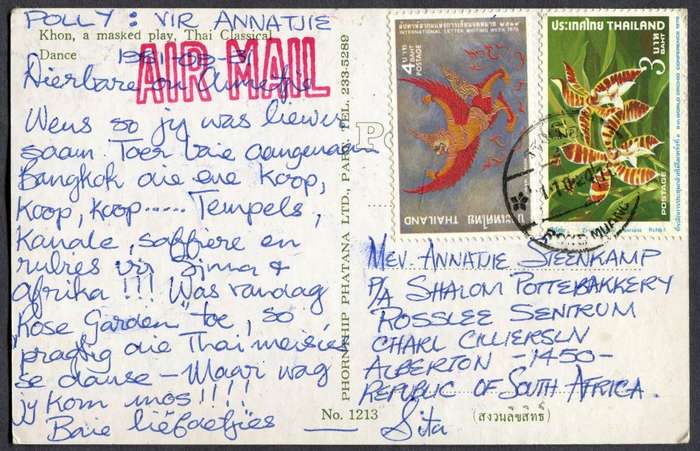 POLLY : VIR ANNATJIE
Khon, a masked play, Thai Classical
Dance
AIR MAIL
Dierbare ou Annetjie
Wens so jy was liewer
saam. Toer baie aangenaam
Bangkok die ene koop,
koop, koop..... Tempels,
Kanale, saffiere en
rubies vir Sima &
Afrika !!! Was vandag
"Rose Garden" toe, so
pragtig die Thai meisies
se danse – Maar wag
jy kom mos !!!!
Baie liefdetjies —
Sita
PHORNTHIP PHATANA LTD., PART. TEL. 233-5289
No. 1213
(สงวนลิขสิทธิ์)
4 บาท
BAHT
POSTAGE
INTERNATIONAL LETTER WRITING WEEK 1975
ประเทศไทย THAILAND
ประเทศไทย THAILAND
3 บาท
BAHT
POSTAGE
9 TH WORLD ORCHID CONFERENCE 1978
MUANG
MEV. ANNATJIE STEENKAMP
P/A SHALOM POTTEBAKKERY
ROSSLEE SENTRUM
CHARL CILLIERSLN
ALBERTON -1450-
REPUBLIC OF SOUTH AFRICA.